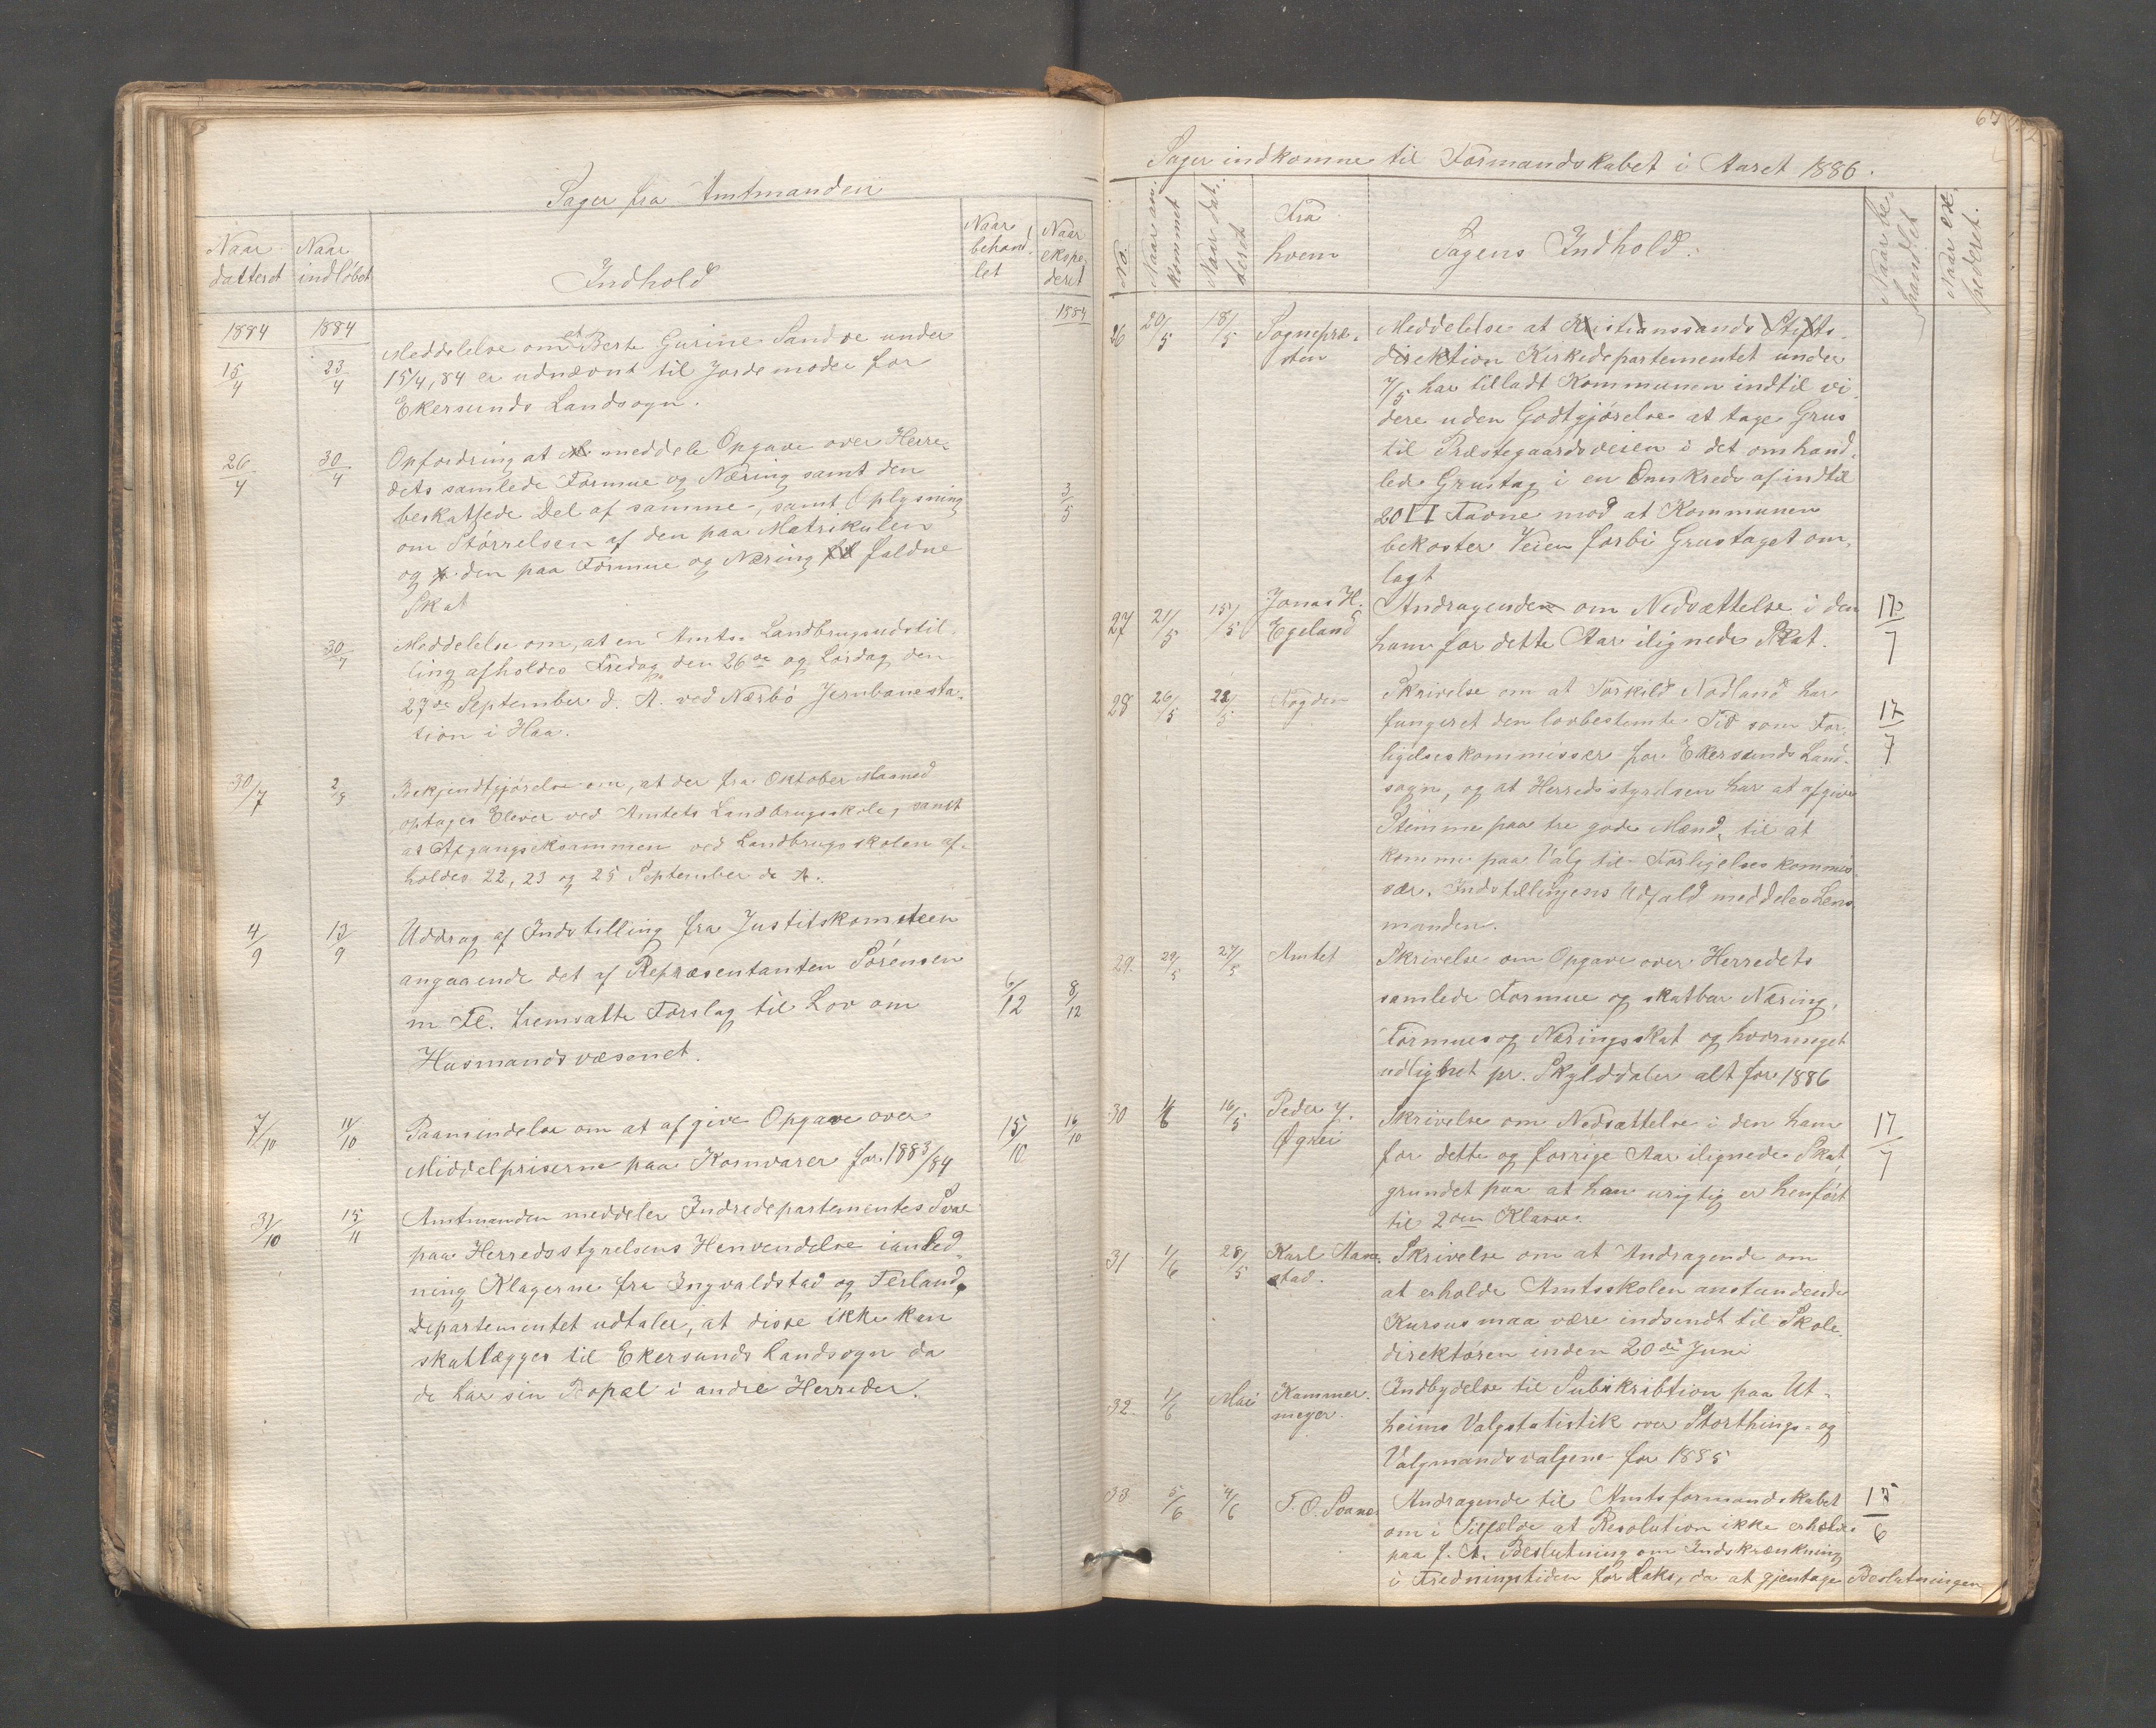 Sager fra Amtmanden
Naar datteret
Naar indløbet
Indhold
Naar behandlet
Naar ekspederet
1884 1884 1884
15/4 23/4 Meddelelse om at Berte Gurine Sandve under
15/4, 84 er udnævnt til Jordemoder for
Ekersunds Landsogn.
26/4 30/4 Opfordring at meddele Opgave over Herre-
dets samlede Formue og Næring samt den
beskattede Del af samme, samt Oplysning 3/5
om Størrelsen af den paa Matrikulen
og den paa Formue og Næring faldne
Skat
30/7 Meddelelse om, at en Amts-Landbrugsudstil-
ling afholdes Fredag den 26de og Lørdag den
27de September d. A. ved Nærbø Jernbanesta-
tion i Haa.
30/7 2/8 Bekjendtgjørelse om, at der fra Oktober Maaned
optages Elever ved Amtets Landbrugsskole, samt
at Afgangseksammen ved Landbrugsskolen af-
holdes 22, 23 og 25 September d. A.
4/9 13/9 Uddrag af Indstilling fra Justitskomiteen
angaaende det af Repræsentanten Sørensen
m Fl. fremsatte Forslag til Lov om 6/12 8/12
Husmandsvæsenet.
7/10 11/10 Paamindelse om at afgive Opgave over 15/10 16/10
Middelpriserne paa Kornvarer for 1883/84
31/10 15/11 Amtmanden meddeler Indredepartementes Svar
paa Herredsstyrelsens Henvendelse ianled-
ning Klagerne fra Ingvaldstad og Ferland.
Departementet udtaler, at disse ikke kan
skatlægges til Ekersunds Landsogn da
de har sin Bopæl i andre Herreder.
67
Sager indkomne til Formandskabet i Aaret 1886.
No.
Naar ankommet
Naar dateret
Fra hvem
Sagens Indhold.
Naar behandlet
Naar expederet.
26 20/5 18/5 Sognepræ- Meddelelse at Kristianssands Stifts-
sten direktion Kirkedepartementet under
7/5 har tilladt Kommunen indtil vi-
dere uden Godtgjørelse at tage Grus
til Præstegaardsveien i det omhand-
lede Grustag i en Omkreds af indtil
20 □ Favne mod at Kommunen
bekoster Veien forbi Grustaget om-
lagt
27 21/5 15/5 Jonas H. Andragende om Nedsættelse i den 17/7
Egeland ham for dette Aar ilignede Skat.
28 26/5 22/5 Fogden Skrivelse om at Torkild Nodland har
fungeret den lovbestemte Tid som For- 17/7
ligelseskommissær for Ekersunds Land-
sogn, og at Herredsstyrelsen har at afgive
Stemme paa tre gode Mænd, til at
komme paa Valg til Forligelseskommis-
sær. Indstillingens Udfald meddeles Lens-
manden.
29. 29/5 27/5 Amtet Skrivelse om Opgave over Herredets
samlede Formue og skatbar Næring,
Formues og Næringsskat og hvormeget
udlignet pr. Skylddaler alt for 1886
30 1/6 16/5 Peder Y. Skrivelse om Nedsættelse i den ham 17/7
Øgrei for dette og forrige Aar ilignede Skat,
grundet paa at han urigtig er henført
til 2den Klasse.
31 1/6 28/5 Karl Aane- Skrivelse om at Andragende om
stad. at erholde Amtsskolen anstundende
Kursus maa være indsendt til Skole-
direktøren inden 20de Juni
32. 1/6 Mai Kammer- Indbydelse til Subskribtion paa Ut-
meyer. heims Valgstatistik over Storthings- og
Valgmandsvalgene for 1885
33 5/6 4/6 T. O. Svanes Andragende til Amtsformandskabet 17/6
om i Tilfælde at Resolution ikke erholdes
paa f. A. Beslutning om Indskrænkning
i Fredningstiden for Laks, da at gjentage Beslutningen